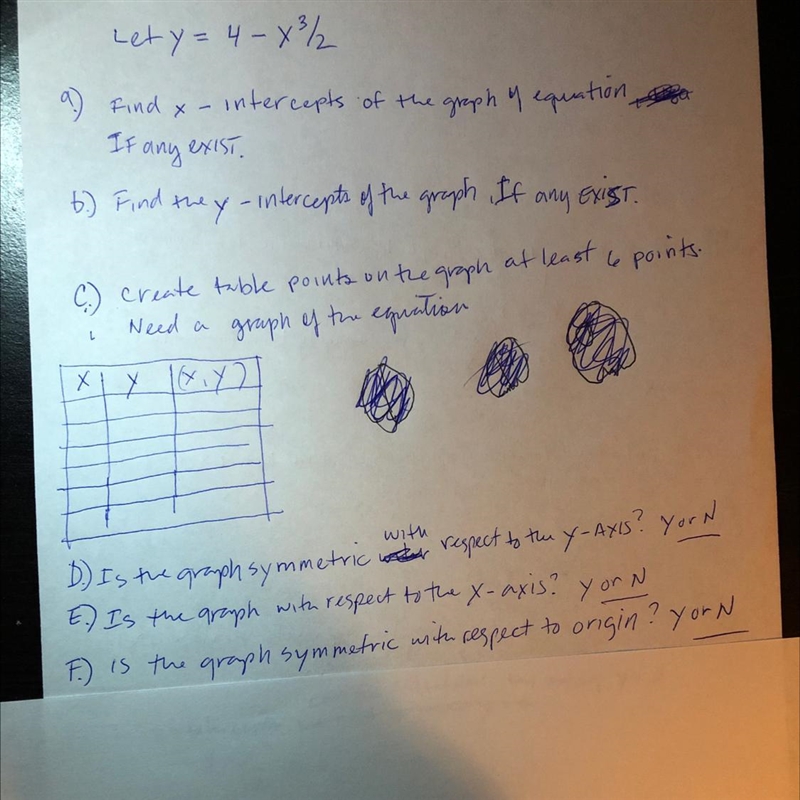 Let y = 4 - x³/2
a.) Find x - intercepts of the graph of equation
If any exist.
b.) Find the y - intercepts of the graph, If any Exist.
C.) Create table points on the graph at least 6 points.
Need a graph of the equation
X Y (X, Y)
D.) Is the graph symmetric with respect to the y-Axis? Y or N
E.) Is the graph with respect to the X-axis? Y or N
F.) is the graph symmetric with respect to origin? Y or N